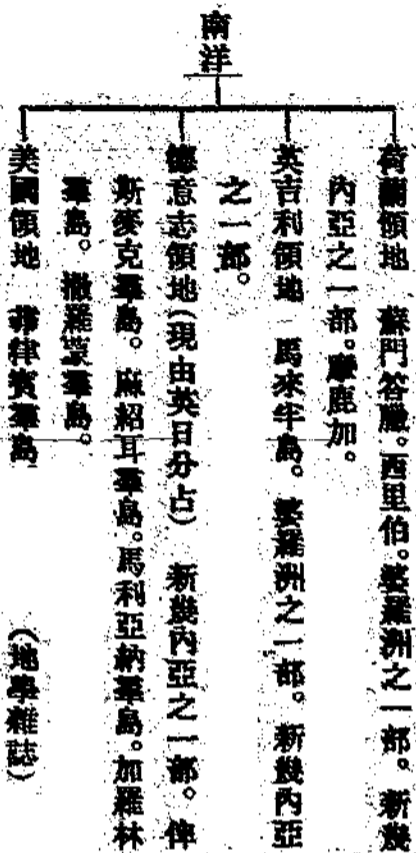 南洋
荷蘭領地　蘇門答臘。西里伯。婆羅洲之一部。新幾
內亞之一部。摩鹿加。
英吉利領地　馬來半島。婆羅洲之一部。新幾內亞
之一部。
德意志領地(現由英日分占)　新幾內亞之一部。俾
斯麥克羣島。麻紹耳羣島。馬利亞納羣島。加羅林
羣島。撒羅蒙羣島。
美國領地　菲律賓羣島
(地學雜誌)